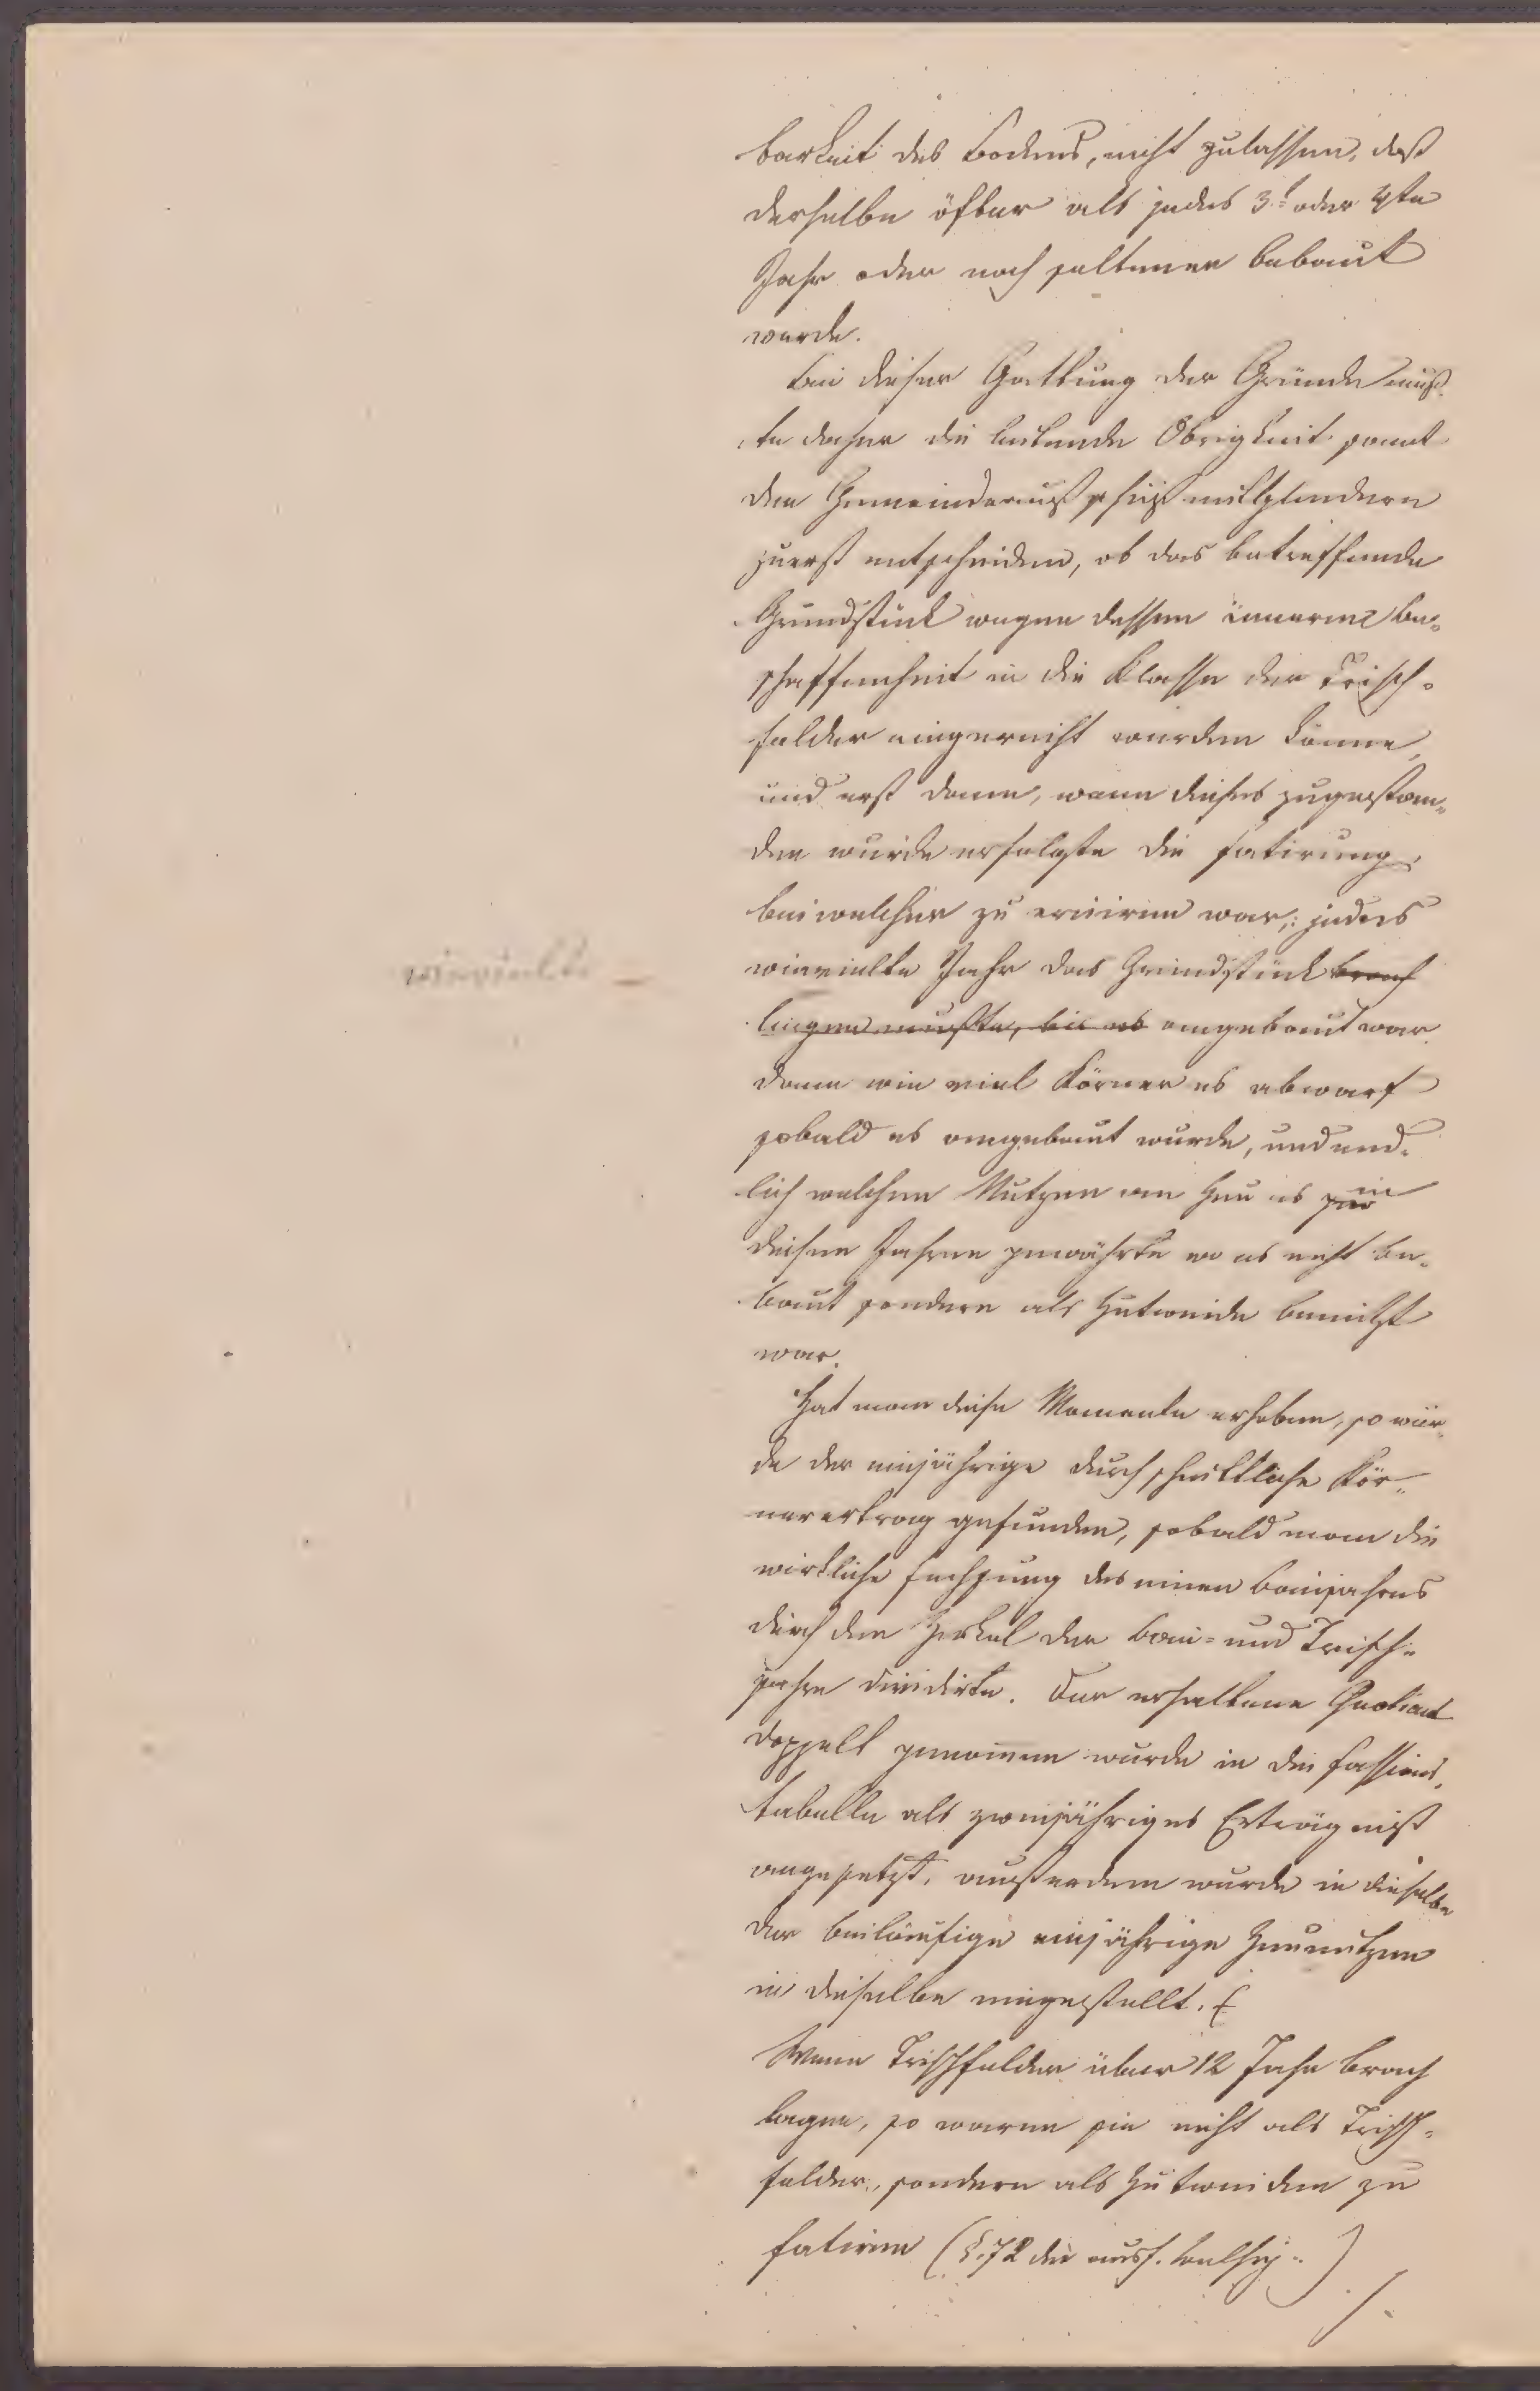 barkeit des Bodens, nicht zulassen, daß
derselbe öfter als jedes 3t oder 4te
Jahr oder noch seltener bebaut
werde.
Bei dieser Gattung der Gründe muß-
te daher die leitende Obrigkeit samt
den Gemeindeausschußmitgliedern
zuerst entscheiden, ob das betreffende
Grundstück wegen dessen inneren Be-
schaffenheit in die Klasse der Trisch-
felder eingereiht werden könne,
und erst dann, wenn dieses zugestan-
den wurde erfolgte die Fatirung,
bei welcher zu eruiren war, jedes
wievielte Jahr das Grundstück brach
liegen mußte, bis es angebaut war
dann wie viel Körner es abwarf
sobald es angebaut wurde, und end-
lich welchen Nutzen an Heu es in
diesen Jahren gewährte wo es nicht be-
baut sondern als Hutweide benützt
war.
Hat man diese Momente erhoben, so wur-
de der einjährige durchschnittliche Kör-
nerertrag gefunden, sobald man die
wirkliche Fechsung des einen Baujahres
durch den Zirkel der Bau- und Trisch-
jahre dividirte. Der erhaltene Quotient
doppelt genommen wurde in die Fassions-
tabelle als zweijähriges Erträgniß
angesetzt, außerdem wurde in dieselbe
der beiläufige einjährige Heunutzen
in dieselbe eingestellt.
Wenn Trischfelder über 12 Jahr brach
lagen, so waren sie nicht als Trisch-
felder, sondern als Hutweiden zu
fatiren (§. 72 der ausf. Belehrg.)
wievielte